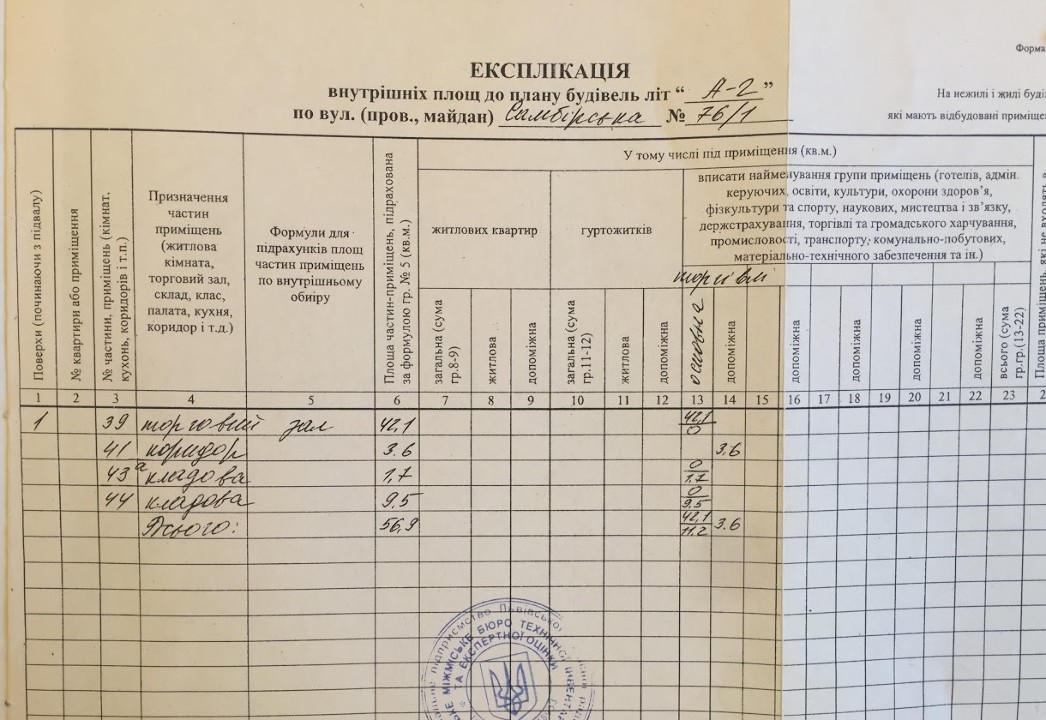 Форма
ЕКСПЛІКАЦІЯ
внутрішніх площ до плану будівель літ “ А-2 ”
На нежилі і жилі буді
по вул. (пров., майдан) Самбірська № 76/1
які мають відбудовані приміщен
Поверхи (починаючи з підвалу)
№ квартири або приміщення
№ частини, приміщень (кімнат,
кухонь, коридорів і т.п.)
Призначення
частин
приміщень
(житлова
кімната,
торговий зал,
склад, клас,
палата, кухня,
коридор і т.д.)
Формули для
підрахунків площ
частин приміщень
по внутрішньому
обміру
Площа частин-приміщень, підрахована
за формулою гр. № 5 (кв.м.)
У тому числі під приміщення (кв.м.)
житлових квартир
гуртожитків
вписати найменування групи приміщень (готелів, адмін.
керуючих, освіти, культури, охорони здоров’я,
фізкультури та спорту, наукових, мистецтва і зв’язку,
держстрахування, торгівлі та громадського харчування,
промисловості, транспорту, комунально-побутових,
матеріально-технічного забезпечення та ін.)
торгівлі
загальна (сума
гр.8-9)
житлова
допоміжна
загальна (сума
гр.11-12)
житлова
допоміжна
основна
допоміжна
допоміжна
допоміжна
допоміжна
допоміжна
всього (сума
гр.гр.(13-22)
Площа приміщень, які не входять в
1 2 3 4 5 6 7 8 9 10 11 12 13 14 15 16 17 18 19 20 21 22 23 2
1 39 торговий зал 42,1 42,1/0
41 коридор 3.6 3.6
43а кладова 1,7 0/1.7
44 кладова 9.5 0/9.5
Всього: 56,9 42,1/11.2 3.6
підприємство Львівської
МІЖМІСЬКЕ БЮРО ТЕХНІЧНОЇ ІНВЕНТАР
ТА ЕКСПЕРТНОЇ ОЦІНКИ